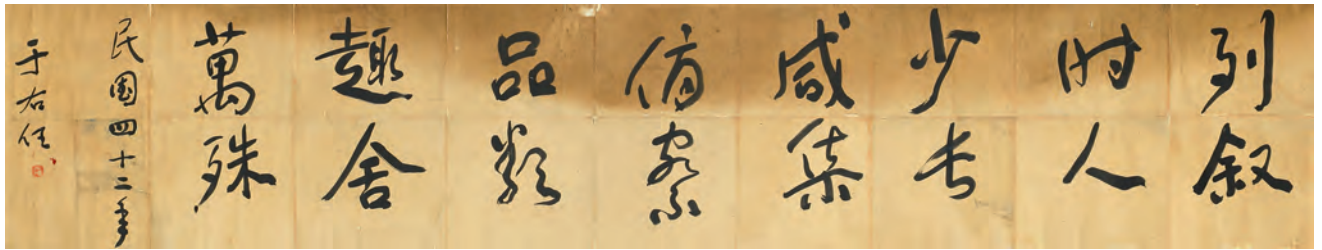 列叙
时人
少长
咸集
俯察
品类
趣舍
萬殊
民国四十二年
于右任